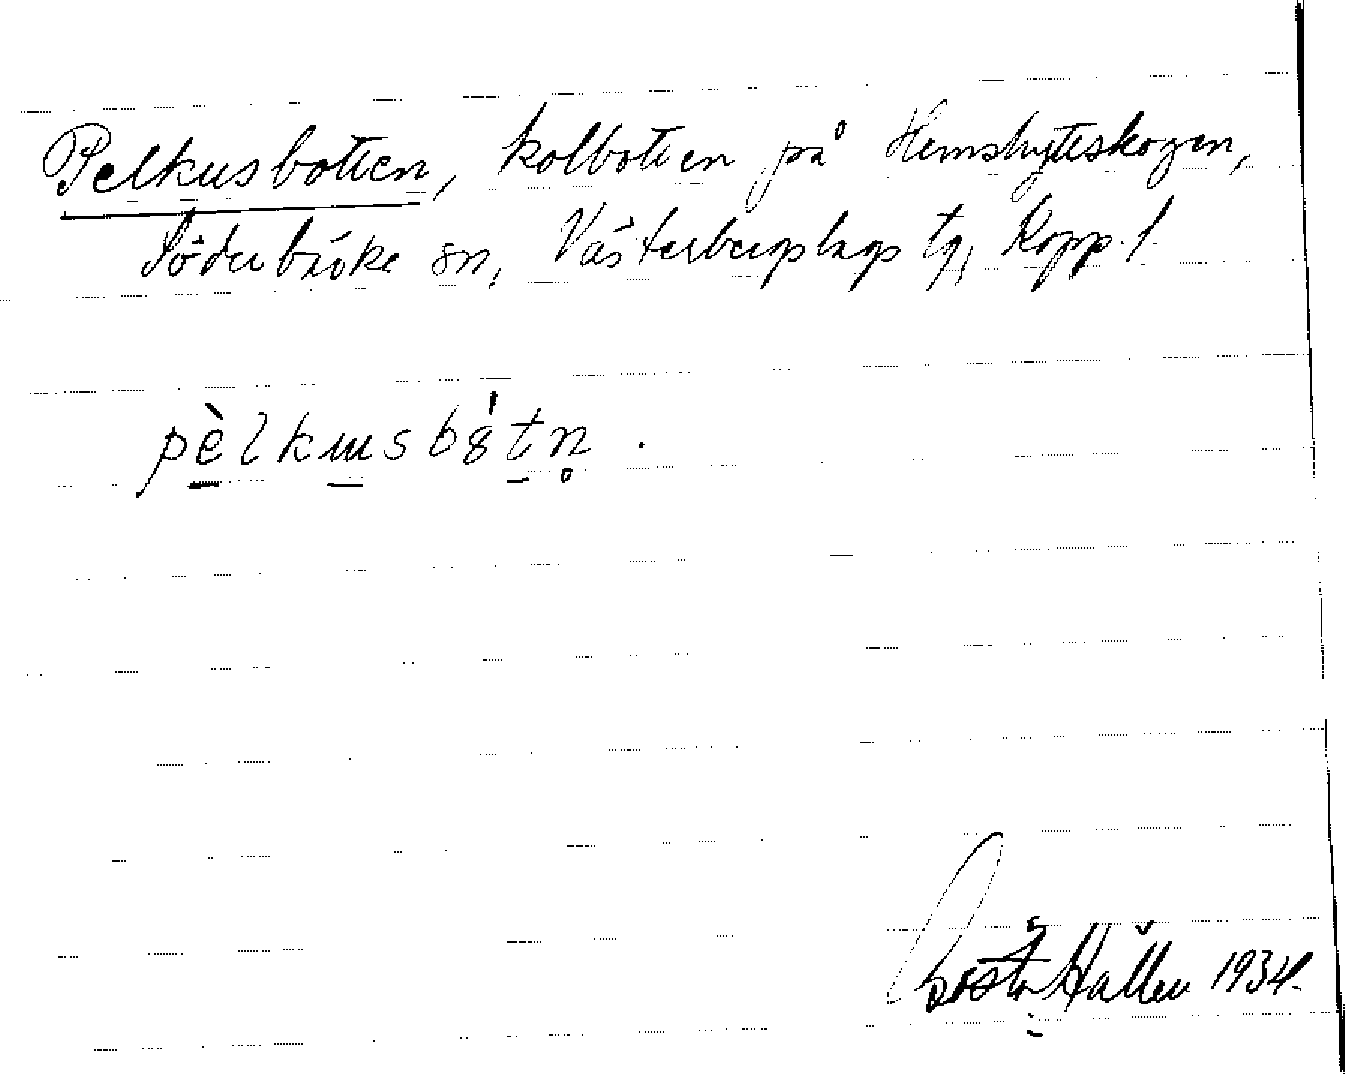 Pelkusbotten, kolbotten på Hemshytteskogen,
Söderbärke sn, Västerbergslags tg, Kopp. l.
pèlkɯsbȣ́tn̥ .
Gösta Hallén 1934.